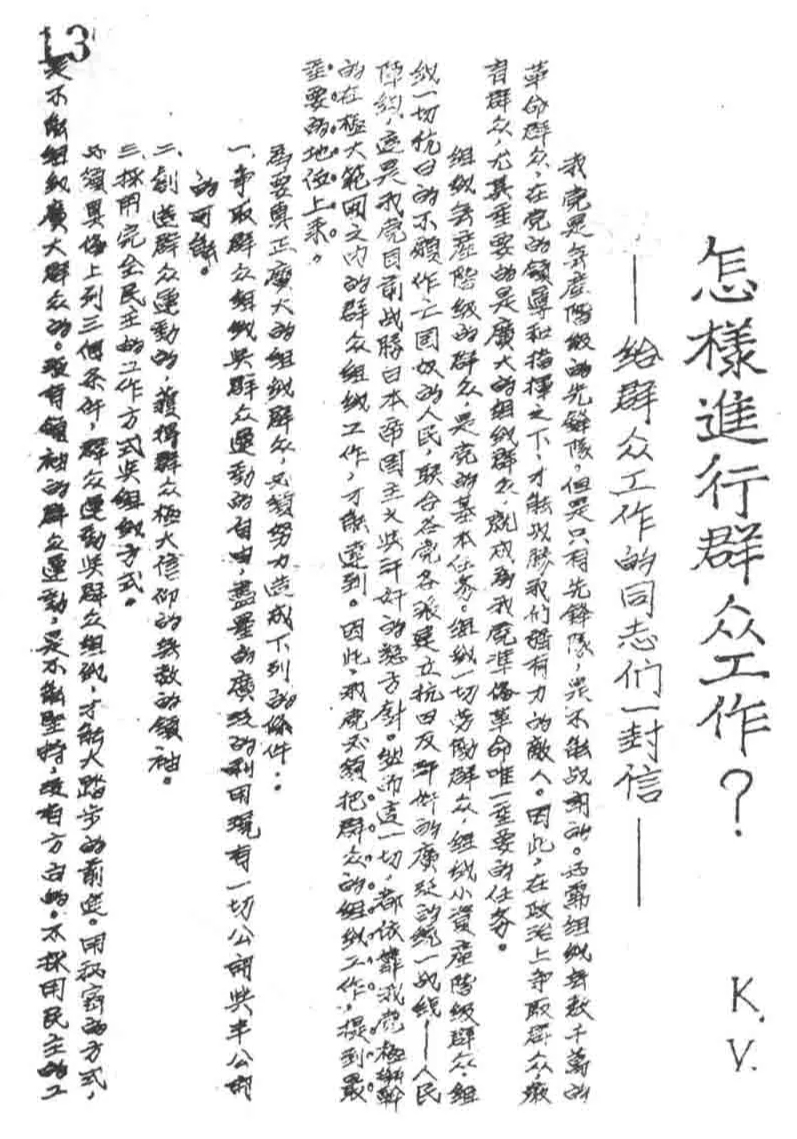 怎樣進行群众工作？
K.V.
——給群众工作的同志们一封信——
我党是無產階級的先鋒隊。但是只有先鋒隊，是不能战鬥的。必需組織無数千萬的
革命群众，在党的領導和指揮之下，才能战勝我们猶有力的敵人。因此，在政治上争取群众，教
育群众，尤其重要的是廣大的組織群众，就成為我党準俻革命唯一重要的任务。
組織無產階級的群众，是党的基本任务。組織一切劳動群众，組織小資產階級群众，組
織一切抗日的不願作亡国奴的人民，联合各党各派建立抗日反汗奸的廣泛的統一战线，——人民
陣綫，這是我党目前战勝日本帝国主义與汗奸的總方針。然而這一切，都依靠我党極
的在極大範围之内的群众組織工作，才能達到。因此，我党必須把群众的組織工作，提到最
重要的地位上來。
為要真正廣大的組織群众，必須努力造成下列的條件：
一、争取群众組織與群众運動的自由，盡量的廣泛的利用現有一切公開與半公開
的可能。
二、創造群众運動的，獲得群众極大信仰的無数的領袖。
三、採用完全民主的工作方式與組織方式。
必須具俻上列三個条件，群众運動與群众組織，才能大踏步的前進。用秘密的方式，
是不能組織廣大群众的。没有領袖的群众運動，是不能堅持，没有方向的。不採用民主的工
13